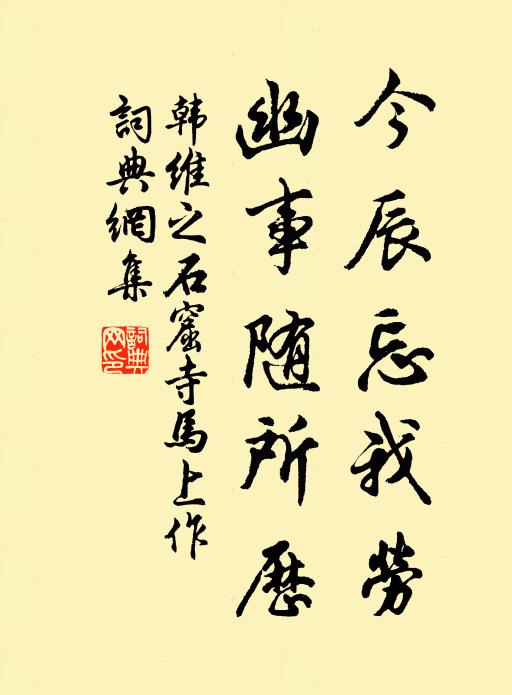 今辰忘我勞
幽事随所歷
韩維之石窟寺馬上作
詞典網集
詞典網印